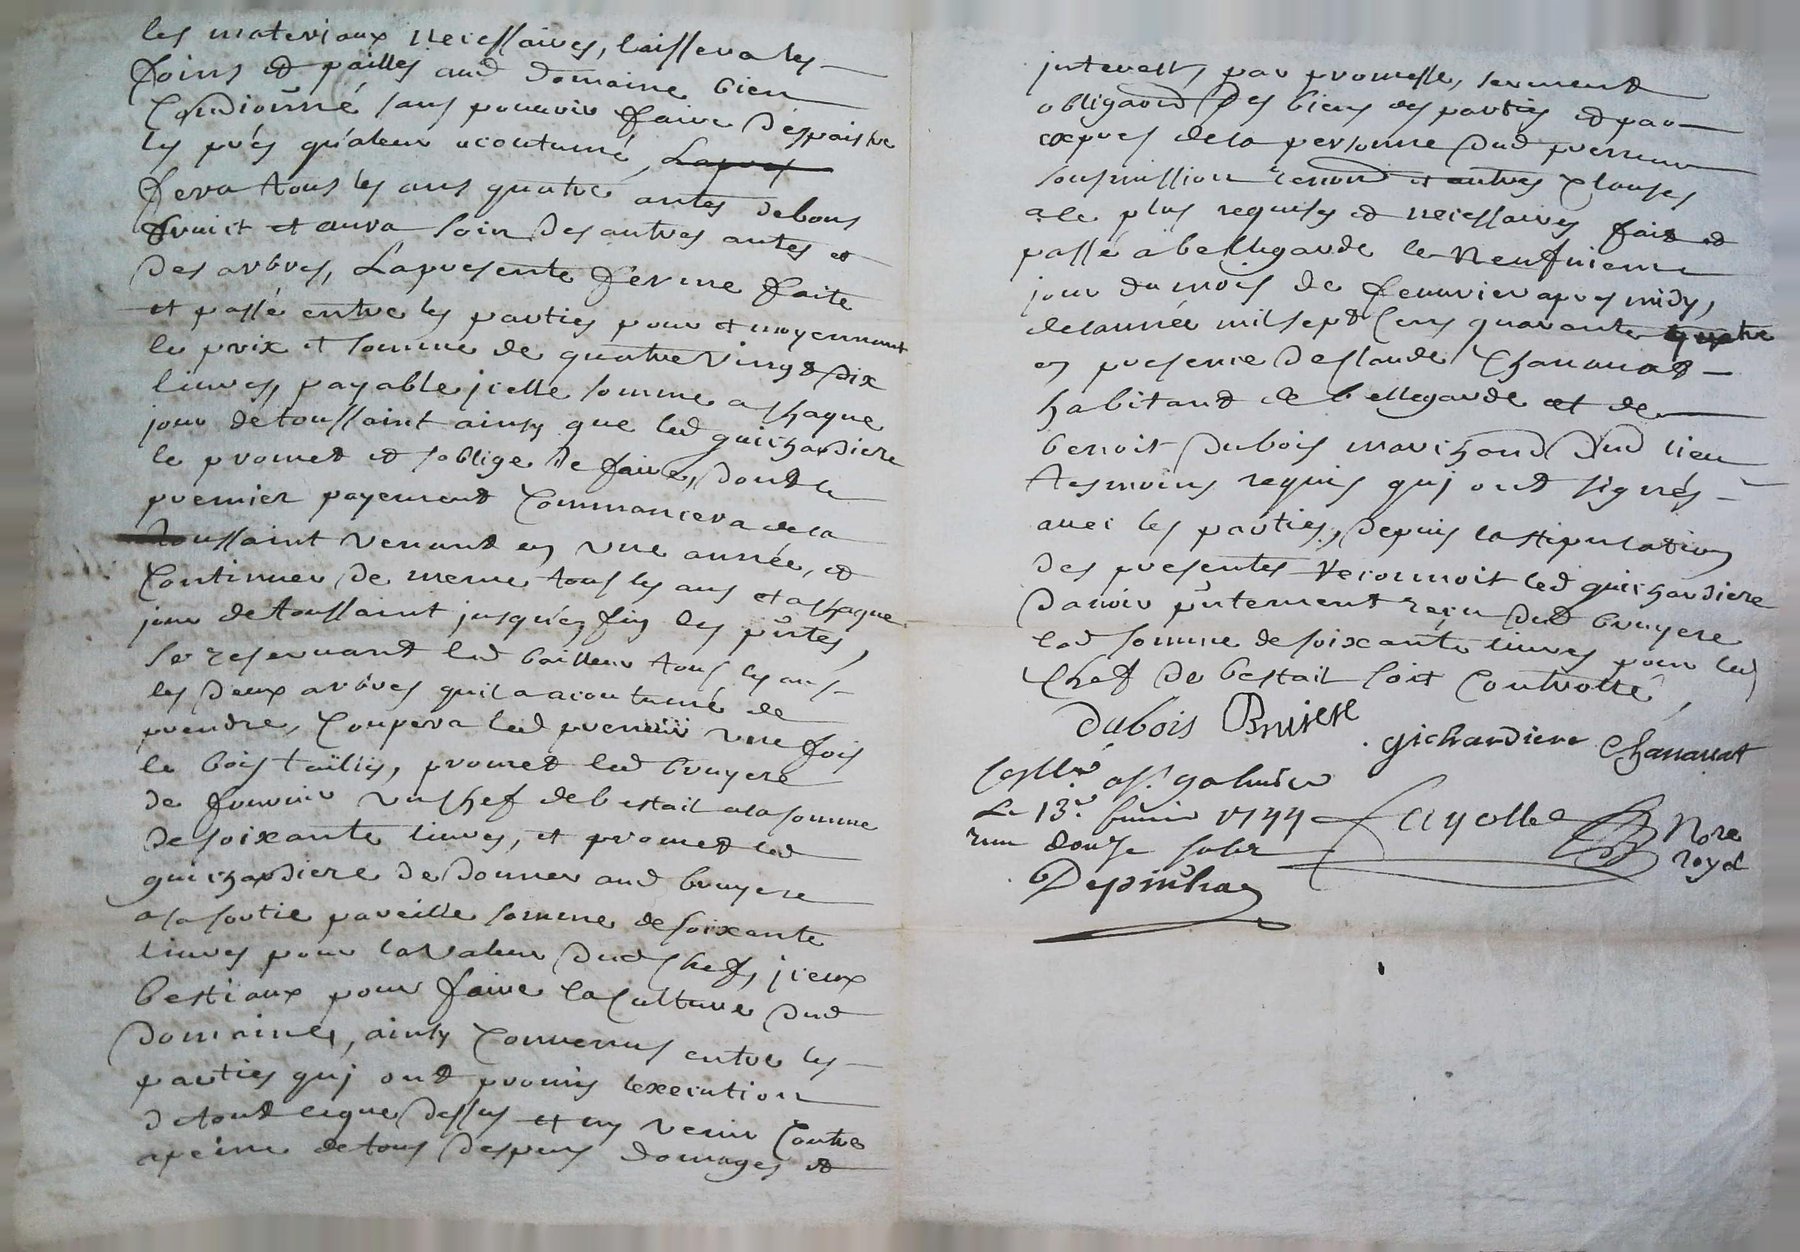 les materiaux necessaires, laissera les
foins et pailles aud domaine bien
Conditionné sans pouvoir faire Despaistre
les prés qu'aleur acoutumé
fera tous les ans quatre antes debons
fruict et aura soin Des autres antes et
Des arbres, Lapresente ferme faite
et passé entre les parties pour et moyennant
le prix et somme de quatre vingt Dix
liures, payable jcelle somme a chaque
jour detoussaint ainsy que led guichardiere
le promet et soblige De faire, Dont le
premier payement Commancera dela
toussaint venant en vne année, et
Continuer De meme tous les ans et a chaque
jour detoussaint jusqu'en fin des pñtes,
Se reseruant led bailleur tous les ans
les Deux arbres quil a acoutumé de
prendre, Coupera led preneur vne fois
le bois taillis, promet led bruyere
de fournir vn chef debestail ala somme
de soixante liures, et promet led
guichardiere De Donner aud bruyere
a sa sortie pareille somme de soixante
liures pour la valeur Dud chef, jceux
bestiaux pour faire la Culture Dud
Domaine, ainsy Conuenus entre les
parties quj ont promis lexecution
De tout ceque Dessus et ny venir Contre
apeine de tous Despens Domages et
interests, par promesse, serment
obligaond Des biens des parties et par
expres dela personne Dud preneur
sousmission renond et autres Clauses
ale plus requises et necessaires fait et
passé a bellegarde le Neufuieme
jour du mois de feuurier apres midy,
delannée mil sept Cens quarante quatre
en presence De Claude Chanauat
habitant de bellegarde et de
benoit Dubois marchand Dud lieu
tesmoins requis quj ont signés
auec les parties, Depuis lastipulation
Des presentes Reconnoit led guichardiere
Dauoir pñtement reçu Dud bruyere
lad somme de soixante liures pour led
Chef De bestail soit Controllé
Dubois Bruiere
gichardiere Chanauat
Contllé a St galmier
Le 13e feurier 1744
reçu Douze sols
Fayolle Nore
royal
Depinhac